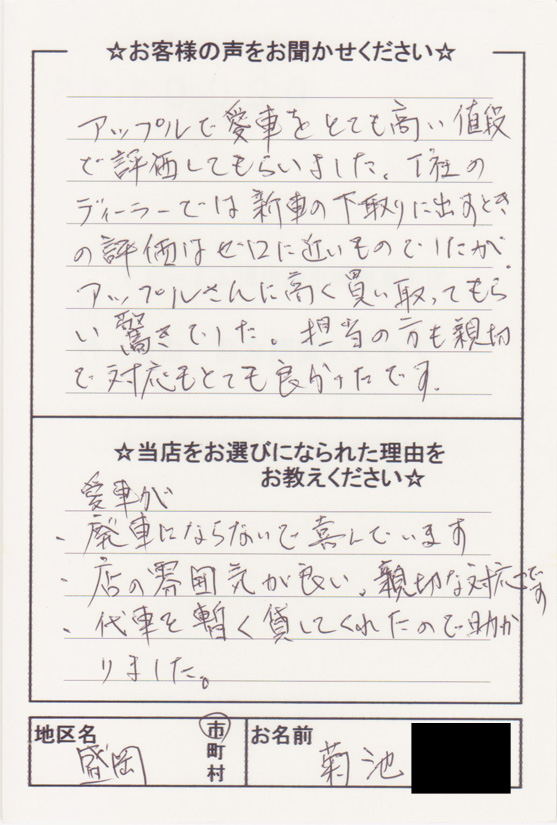 ☆お客様の声をお聞かせください☆
アップルで愛車をとても高い値段
で評価してもらいました。T社の
ディーラーでは新車の下取りに出すとき
の評価はゼロに近いものでしたが、
アップルさんに高く買い取ってもら
い驚きでした。担当の方も親切
で対応もとても良かったです。
☆当店をお選びになられた理由を
お教えください☆
愛車が
・廃車にならないで喜んでいます
・店の雰囲気が良い。親切な対応です
・代車を暫く貸してくれたので助か
りました。
地区名 盛岡 市町村 お名前 菊池